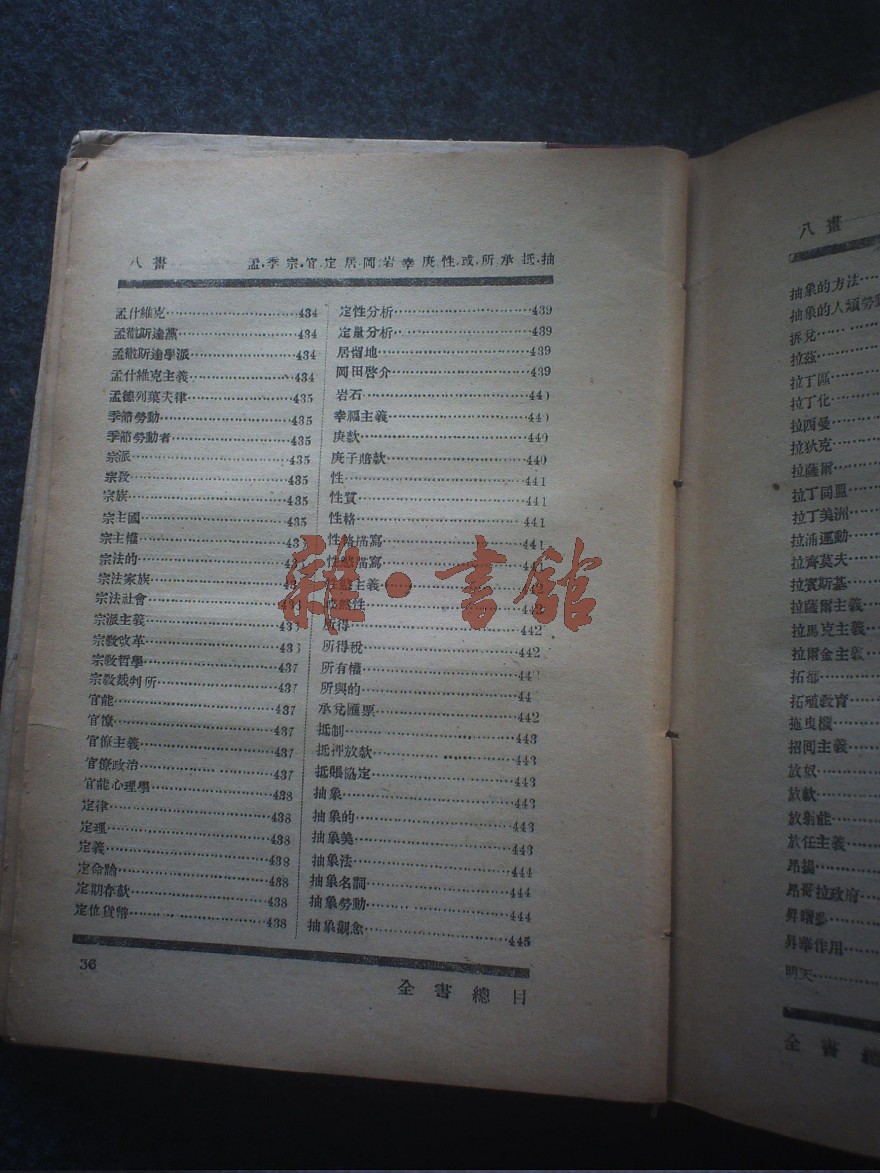 八畫 孟.季.宗.官.定.居.岡.岩.幸.庚.性.或.所.承.抵.抽
孟什維克 434
孟徹斯達黨 434
孟徹斯達學派 434
孟什維克主義 434
孟德列葉夫律 435
季節勞動 435
季節勞動者 435
宗派 435
宗教 435
宗族 435
宗主國 435
宗主權
宗法的
宗法家族
宗法社會
宗派主義
宗教改革 436
宗教哲學 437
宗教裁判所 437
官能 437
官僚 437
官僚主義 437
官僚政治 437
官能心理學 438
定律 438
定理 438
定義 438
定命論 438
定期存款 438
定位貨幣 438
定性分析 439
定量分析 439
居留地 439
岡田啓介 439
岩石 440
幸福主義 440
庚款 440
庚子賠款 440
性 441
性質 441
性格 441
性格描寫 441
性慾描寫
性慾主義
或然性 442
所得 442
所得稅 442
所有權 44
所與的 44
承兌匯票 442
抵制 443
抵押放款 443
抵賬協定 443
抽象 443
抽象的 443
抽象美 443
抽象法 444
抽象名詞 444
抽象勞動 444
抽象觀念 445
36
全書總目
雜·書館
八畫
抽象的方法
抽象的人類勞
拆兌
拉茲
拉丁區
拉丁化
拉西曼
拉狄克
拉薩爾
拉丁同盟
拉丁美洲
拉涌運動
拉齊莫夫
拉賓斯基
拉薩爾主義
拉馬克主義
拉爾金主義
拓都
拓殖教育
拖曳機
招回主義
放奴
放款
放射能
放任主義
昂揚
昂哥拉政府
昇曙夢
昇華作用
明天
全書總